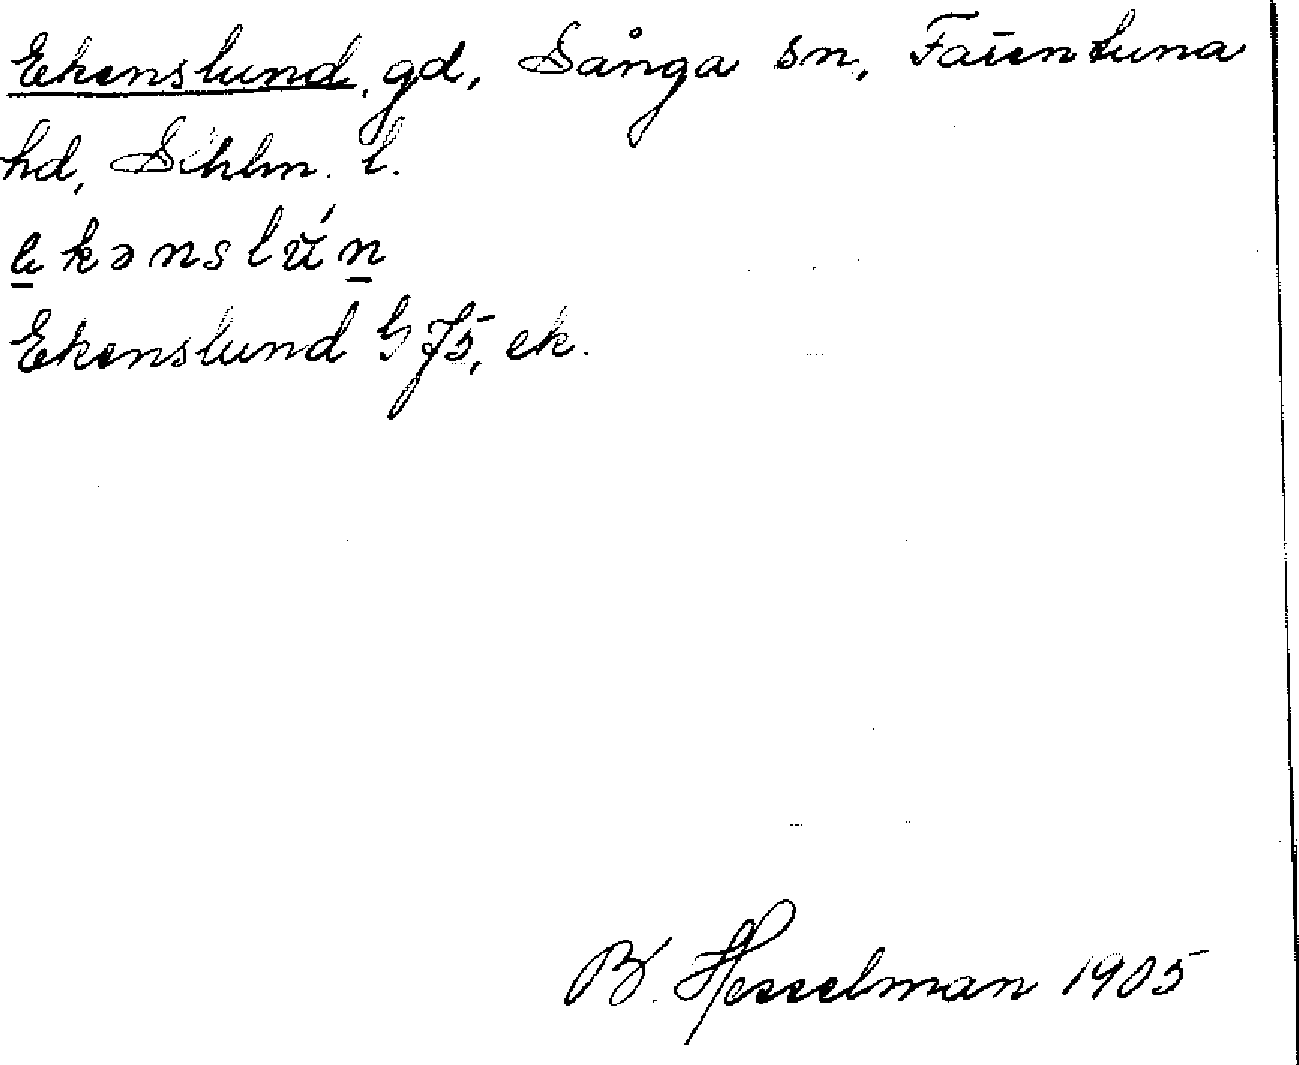 Ekenslund, gd, Sånga sn, Färentuna
hd, Sthlm. l.
ekənslún
Ekenslund G 75, ek.
B. Hesselman 1905